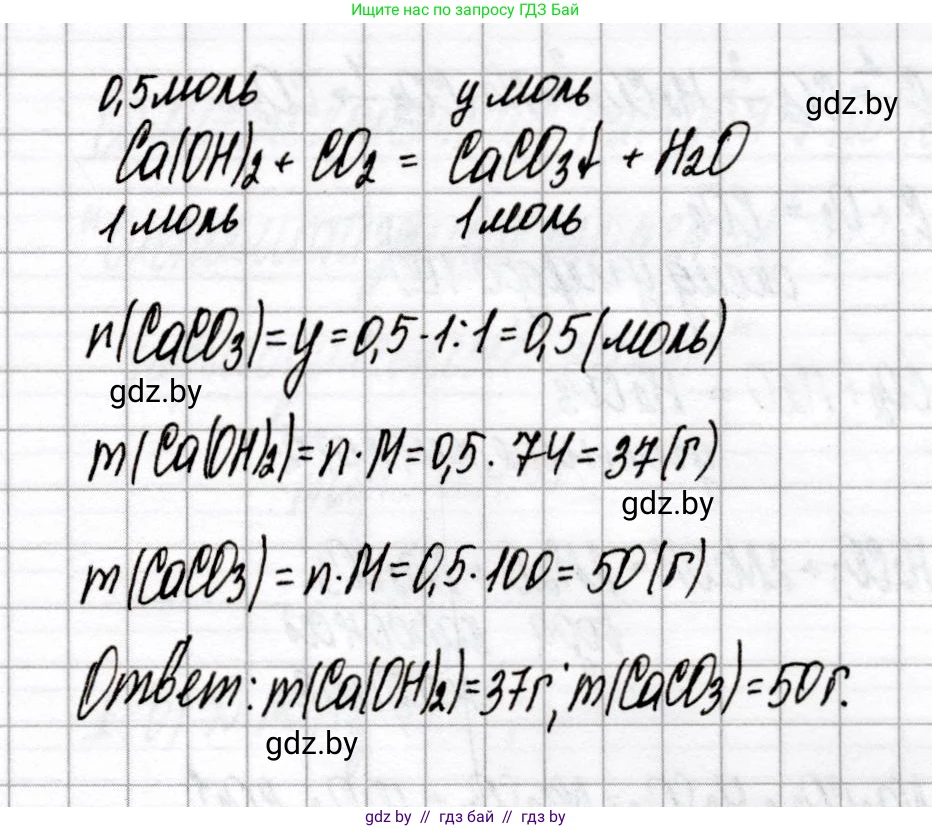 Ищите нас по запросу ГДЗ Бай
0,5 моль y моль
gdz.by
Ca(OH)2 + CO2 = CaCO3↓ + H2O
1 моль 1 моль
n(CaCO3) = y = 0,5 · 1 : 1 = 0,5 (моль)
gdz.by
m(Ca(OH)2) = n · M = 0,5 · 74 = 37 (г)
gdz.by
m(CaCO3) = n · M = 0,5 · 100 = 50 (г)
Ответ: m(Ca(OH)2) = 37 г; m(CaCO3) = 50 г.
gdz.by
gdz.by // гдз бай // gdz.by